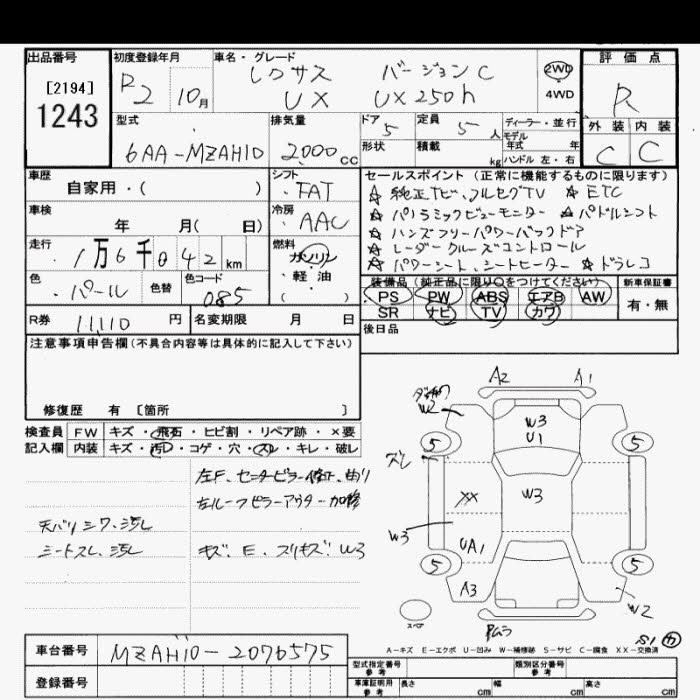 出品番号
[2194]
1243
初度登録年月
R2 10月
車名・グレード
レクサス バージョンC
UX UX250h
2WD
4WD
評価点
R
外装 内装
C C
型式
6AA-MZAH10
排気量
2000cc
ドア
5
定員
5人
形状
積載
kg
ディーラー・並行
モデル年式 年
ハンドル 左・右
車歴
自家用・( )
シフト
FAT
車検
年 月( 日)
冷房
AAC
走行
1万6千042km
燃料
ガソリン
・軽油
( )
色
・パール
色替
色コード
085
セールスポイント (正常に機能するものに限ります)
☆純正TV、フルセグTV ☆ETC
☆パノラミックビューモニター ☆パドルシフト
☆ハンズフリーパワーバックドア
☆レーダークルーズコントロール
☆パワーシート、シートヒーター ☆ドラレコ
装備品 (純正品に限り○をつけてください)
PS PW ABS エアB AW
SR ナビ TV カワ
新車保証書
有・無
後日品
R券
11,110円
名変期限 月 日
注意事項申告欄 (不具合内容等は具体的に記入して下さい)
修復歴 有 [箇所 ]
検査員記入欄
FW キズ・飛石・ヒビ割・リペア跡・×要
内装 キズ・汚レ・コゲ・穴・スレ・キレ・破レ
左F、センターピラー修正、曲り
左ルーフピラーアウター加修
天バリシワ、汚レ
シートスレ、汚レ
キズ、E、スリキズ、W3
A2 A1
W2
W3
U1
5 5
ズレ
XX
W3
W3
UA1
5 5
A3
W2
スペア
A-キズ E-エクボ U-凹み W-補修跡 S-サビ C-腐食 XX-交換済
車台番号
MZAH10-2076575
登録番号
型式指定番号 参考
類別区分番号 参考
車庫証明用 参考
長さ cm
幅 cm
高さ cm